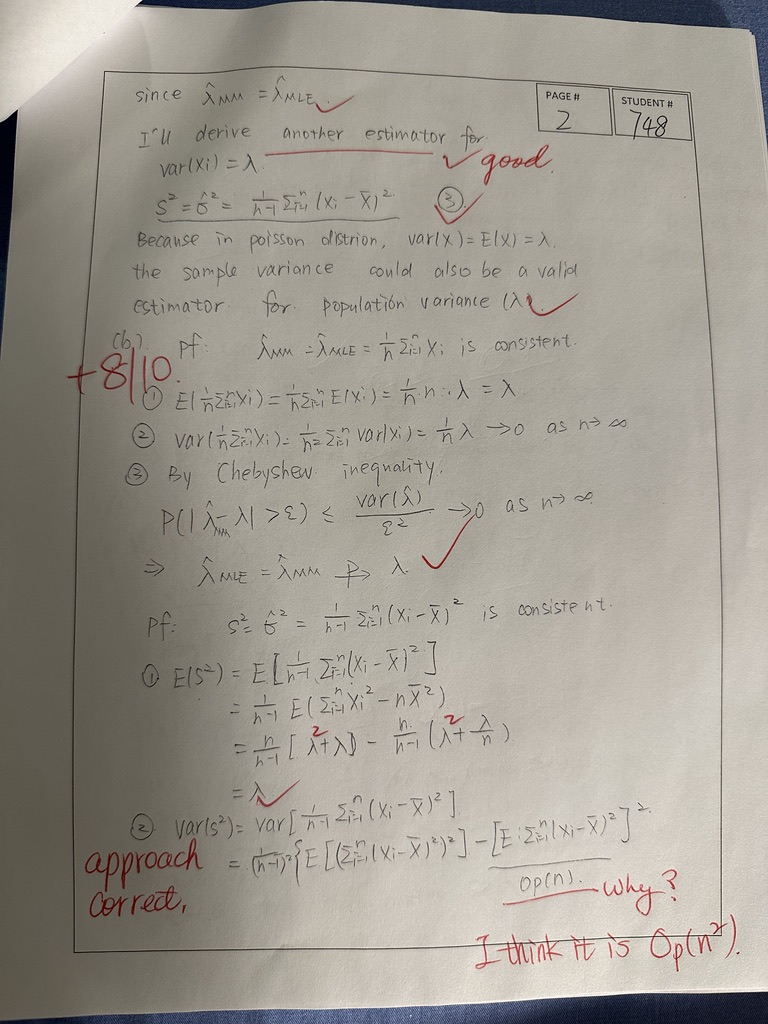 PAGE #
2
STUDENT #
748
since λ̂MM = λ̂MLE ✓
I'll derive another estimator for
✓ good.
var(Xi) = λ.
S² = σ̂² = 1/(n-1) Σᵢ₌₁ⁿ (Xi - X̄)². ③ ✓
Because in poisson distrion, var(X) = E(X) = λ.
the sample variance could also be a valid
estimator for population variance (λ). ✓
(b). pf: λ̂MM = λ̂MLE = 1/n Σᵢ₌₁ⁿ Xi is consistent.
+8/10.
① E(1/n Σᵢ₌₁ⁿ Xi) = 1/n Σᵢ₌₁ⁿ E(Xi) = 1/n · n · λ = λ
② var(1/n Σᵢ₌₁ⁿ Xi) = 1/n² Σᵢ₌₁ⁿ var(Xi) = 1/n λ → 0 as n → ∞
③ By Chebyshew inequality.
P(|λ̂MM - λ| > ε) ≤ var(λ̂)/ε² → 0 as n → ∞
⇒ λ̂MLE = λ̂MM →P λ. ✓
Pf: S² = σ̂² = 1/(n-1) Σᵢ₌₁ⁿ (Xi - X̄)² is consistent.
① E(S²) = E[1/(n-1) Σᵢ₌₁ⁿ (Xi - X̄)²]
= 1/(n-1) E(Σᵢ₌₁ⁿ Xi² - nX̄²)
= n/(n-1) [λ² + λ] - n/(n-1) (λ² + λ/n)
= λ ✓
② var(S²) = var[1/(n-1) Σᵢ₌₁ⁿ (Xi - X̄)²]
= 1/(n-1)² {E[(Σᵢ₌₁ⁿ (Xi - X̄)²)²] - [E·Σᵢ₌₁ⁿ (Xi - X̄)²]².
approach
correct,
Op(n). why?
I think it is Op(n²).